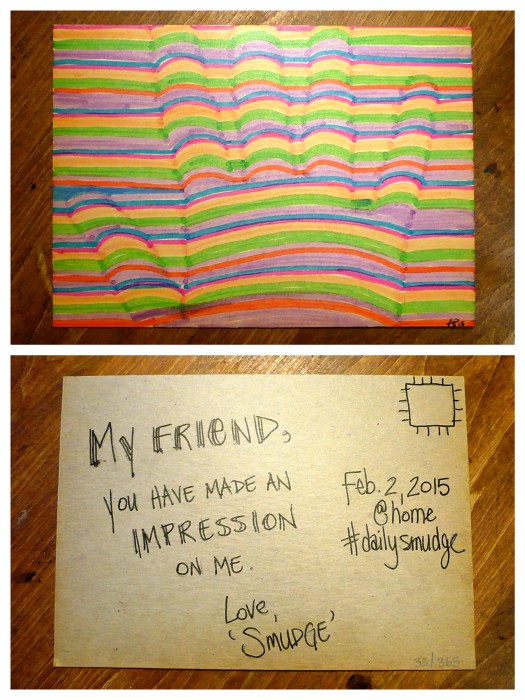 My FRIEND,
YOU HAVE MADE AN
IMPRESSION
ON ME.
Love,
'SMUDGE'
Feb. 2, 2015
@home
#dailysmudge
33/365